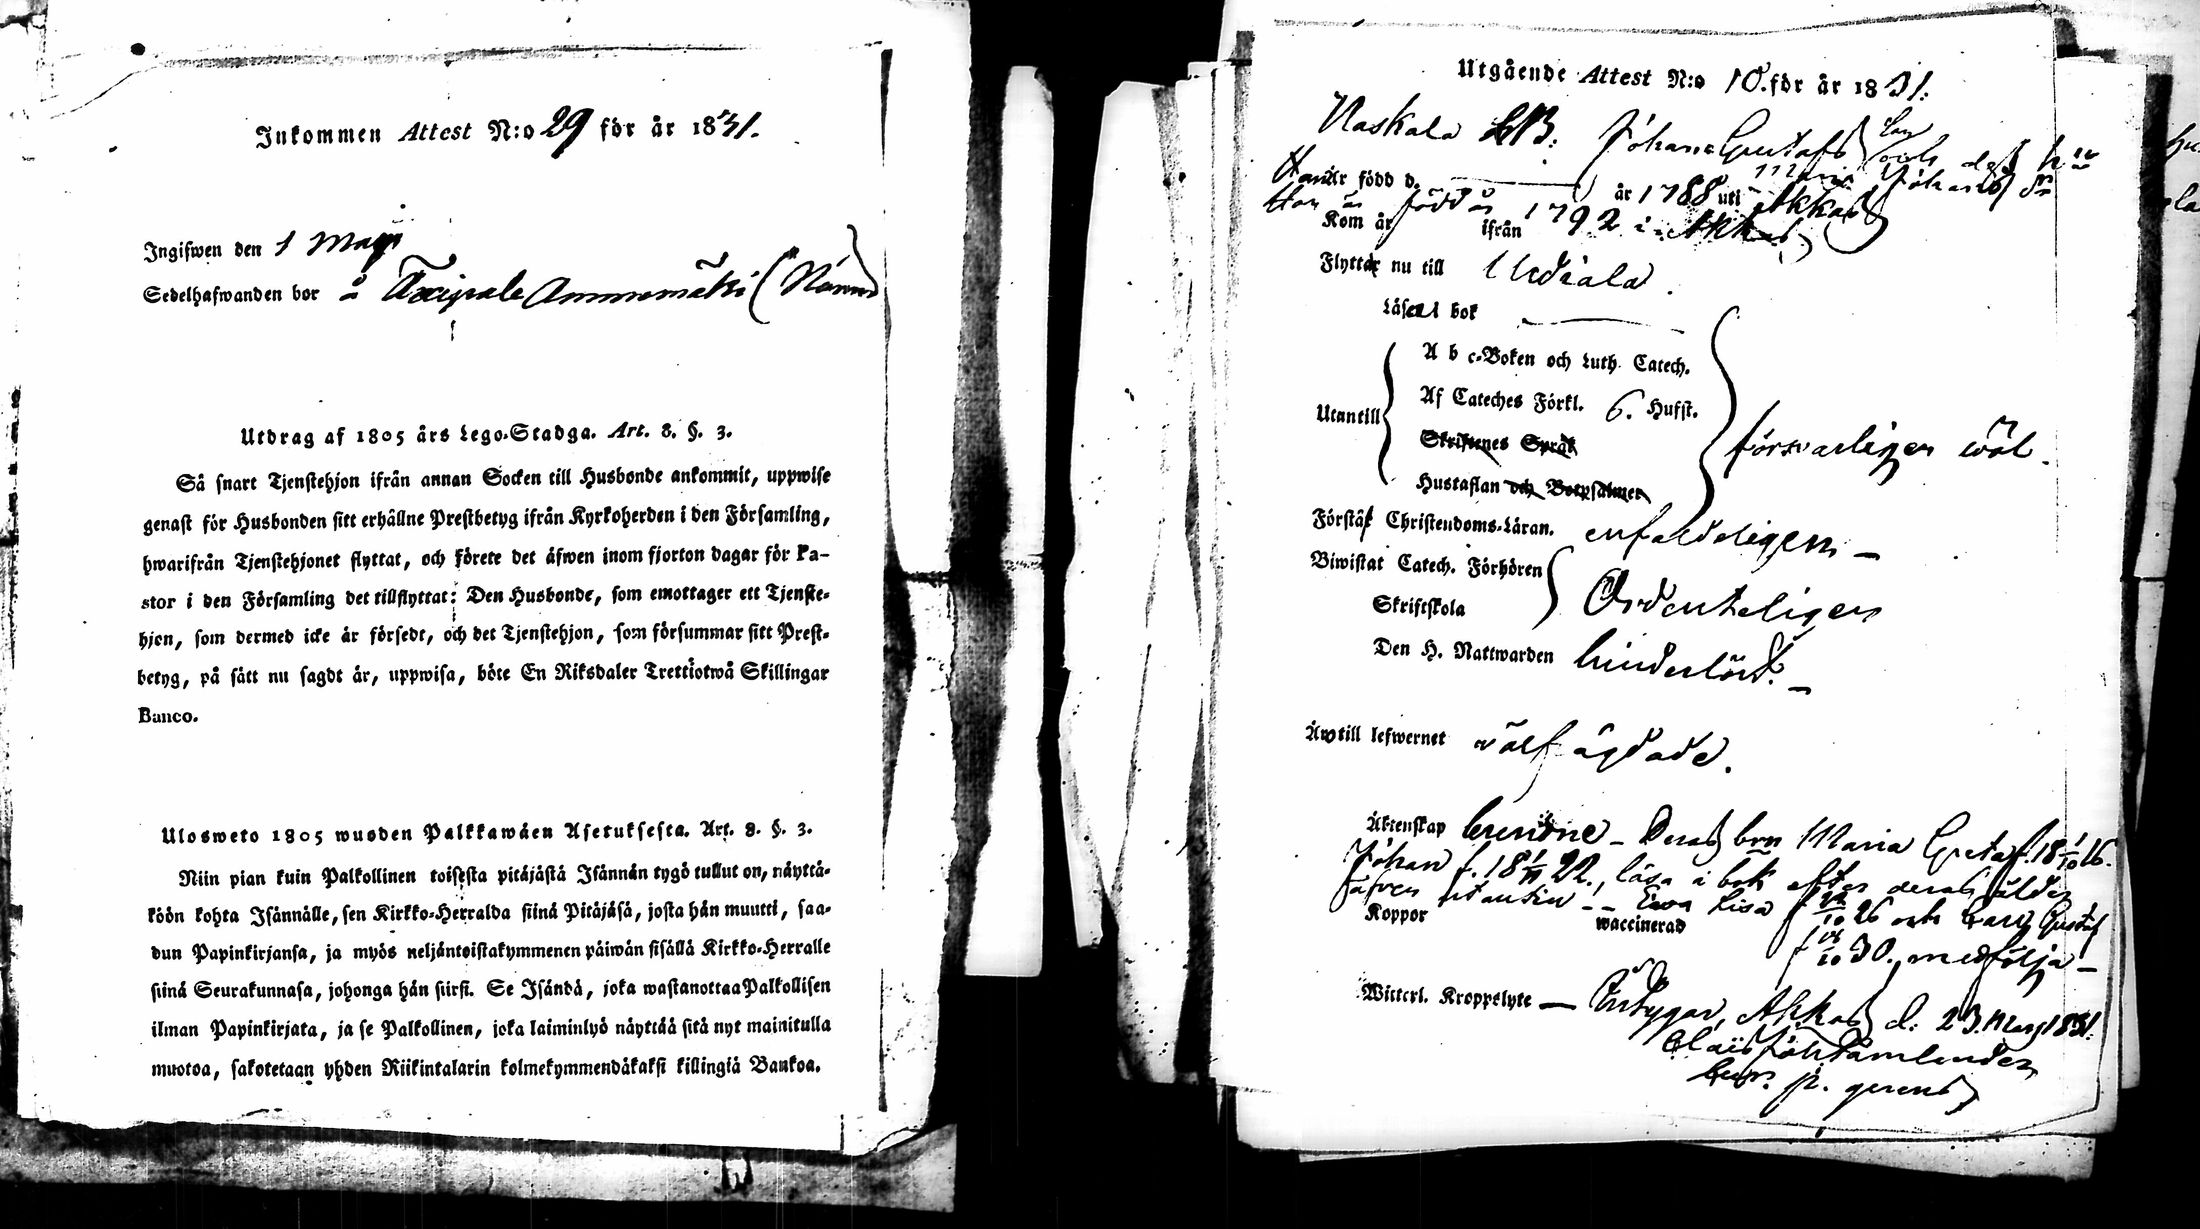 Inkommen Attest N:o 29 för år 1831.
Ingifwen den 1 Maji
Sedelhafwanden bor å Ammemäki
Utdrag af 1805 års Lego-Stadga. Art. 8. §. 3.
Så snart Tjenstehjon ifrån annan Socken till Husbonde ankommit, uppwise
genast för Husbonden sitt erhållne Prestbetyg ifrån Kyrkoherden i den Församling,
hwarifrån Tjenstehjonet flyttat, och förete det äfwen inom fjorton dagar för Pa-
stor i den Församling det tillflyttat: Den Husbonde, som emottager ett Tjenste-
hjon, som dermed icke är försedt, och det Tjenstehjon, som försummar sitt Prest-
betyg, på sätt nu sagdt är, uppwisa, böte En Riksdaler Trettiotwå Skillingar
Banco.
Ulosweto 1805 wuoden Palkkawäen Asetuksesta. Art. 8. §. 3.
Niin pian kuin Palkollinen toisesta pitäjästä Isännän tygö tullut on, näyttä-
köön kohta Isännälle, sen Kirkko-Herralda siinä Pitäjäsä, josta hän muutti, saa-
dun Papinkirjansa, ja myös neljäntoistakymmenen päiwän sisällä Kirkko-Herralle
siinä Seurakunnasa, johonga hän siirsi. Se Isändä, joka wastanottaa Palkollisen
ilman Papinkirjata, ja se Palkollinen, joka laiminlyö näyttää sitä nyt mainitulla
muotoa, sakotetaan yhden Riikintalarin kolmekymmendäkaksi killingiä Bankoa.
Utgående Attest N:o 10. för år 1831.
Johan Gustafs och des h
Maria Johansd:r
Han är född d. år 1788 uti Akkas
Hon är född år 1792 i Akkas
Kom år ifrån
Flyttar nu till Urdiala.
Läser i bok
A b c-Boken och Luth. Catech.
Af Cateches Förkl. 6. Hufst.
Utantill försvarligen wäl.
Skriftenes Språk
Hustaflan och Botpsalmer
Förstår Christendoms-Läran. enfaldeligen
Biwistat Catech. Förhören
Ordenteligen
Skriftskola
Den H. Nattwarden hinderlöst.
Är till lefwernet välfrägdade.
Äktenskap Deras brn Maria Greta f. 18 1/10 16.
Johan f. 18 22., läsa i bok efter deras ålder
äfven utantill Ewa Lisa f 10 26 och Carl Gustaf
Koppor waccinerad
f 10 30. medfölja
Witterl. Kroppslyte Intygar, Akkas d. 23. Mars 1831.